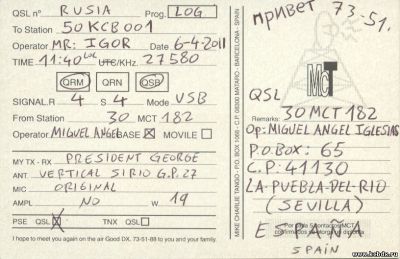 QSL nº RUSIA Prog. LOG
To Station 50KCB001
Operator MR: IGOR Date 6-4-2011
TIME 11:40 LOC UTC/KHz. 27580
QRM QRN QSB
SIGNAL R 4 S 4 Mode USB
From Station 30 MCT 182
Operator MIGUEL ANGEL BASE X MOVILE
MY TX - RX PRESIDENT GEORGE
ANT. VERTICAL SIRIO G.P.27
MIC ORIGINAL
AMPL NO W 19
PSE QSL X TNX QSL
I hope to meet you again on the air Good DX. 73-51-88 to you and your family.
MIKE CHARLIE TANGO - P.O. BOX 1066 - C.P. 08300 MATARO - BARCELONA - SPAIN
привет 73-51.
MCT
QSL
Remarks: 30 MCT 182
Op: MIGUEL ANGEL IGLESIAS
P.O.BOX: 65
C.P: 41130
LA-PUEBLA-DEL-RIO
(SEVILLA)
ESPAÑA
SPAIN
www.kcbdx.ru